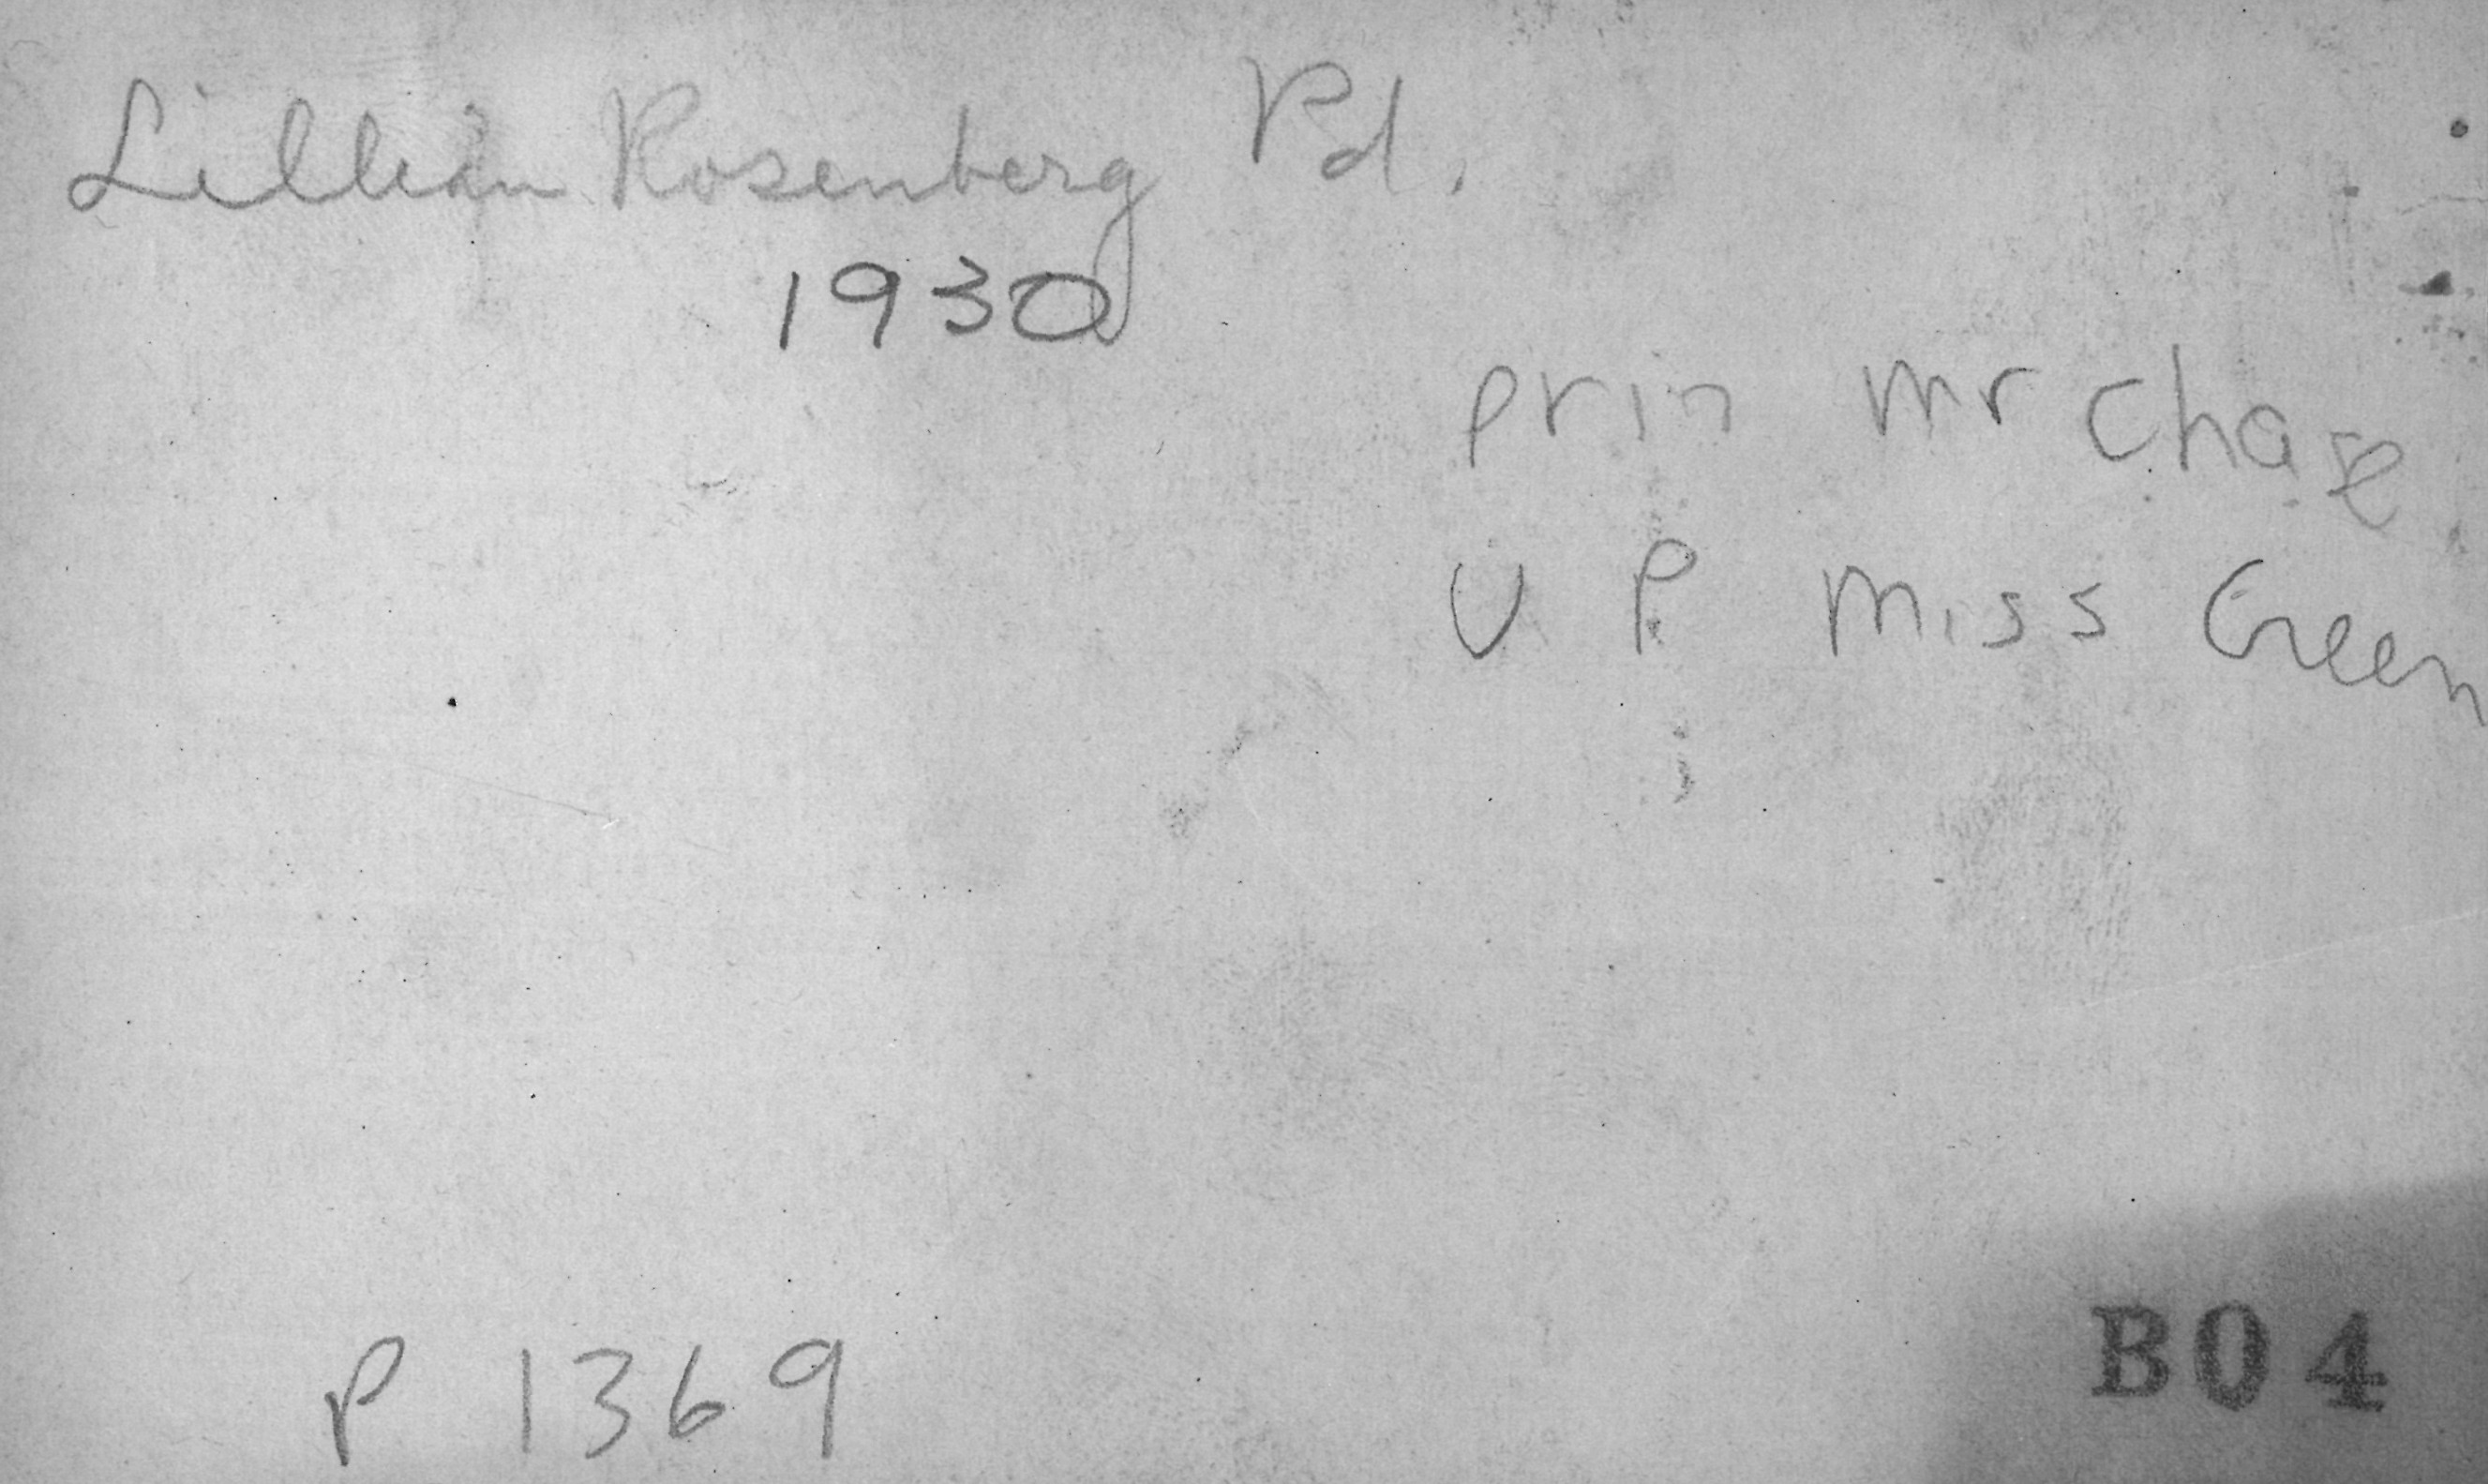 Lillian Rosenberg Pd.
1930
prin mr chase
V P miss Green
P 1369
B04